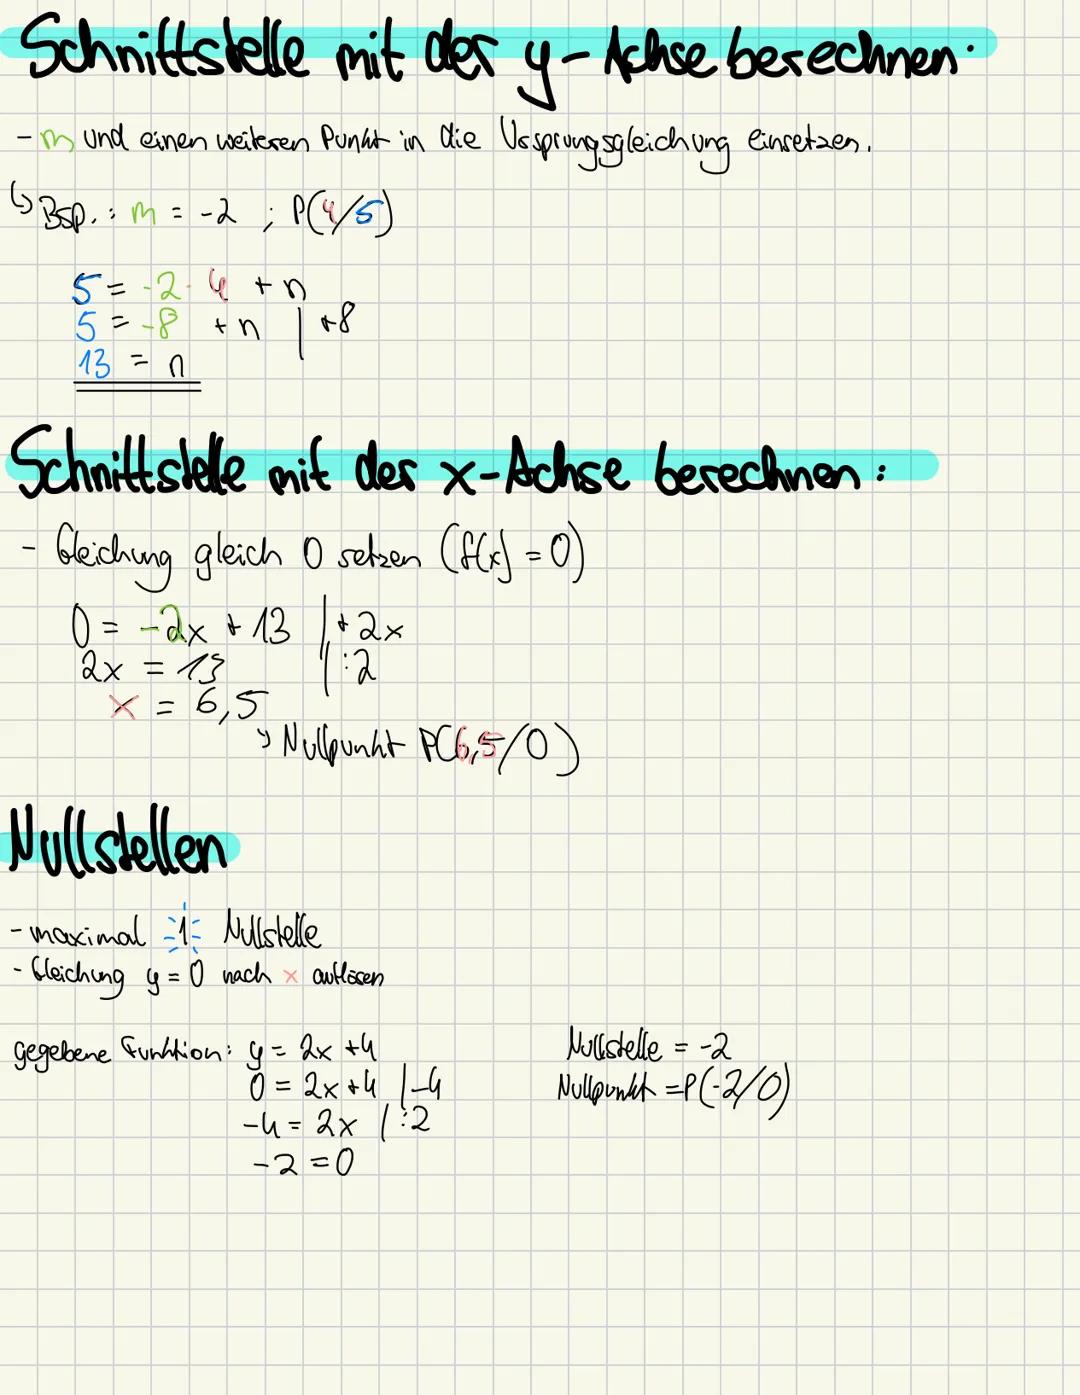 Schnittstelle mit der y-Achse berechnen:
- m und einen weiteren Punkt in die Ursprungsgleichung einsetzen.
↳ Bsp.: m = -2 ; P(4/5)
5 = -2 · 4 + n
5 = -8 + n | +8
13 = n
Schnittstelle mit der x-Achse berechnen:
- Gleichung gleich 0 setzen (f(x) = 0)
0 = -2x + 13 | + 2x
2x = 13 | :2
x = 6,5
↳ Nullpunkt P(6,5/0)
Nullstellen
- maximal 1 Nullstelle
- Gleichung y = 0 nach x auflösen
gegebene Funktion: y = 2x + 4
0 = 2x + 4 | -4
-4 = 2x | :2
-2 = 0
Nullstelle = -2
Nullpunkt = P(-2/0)